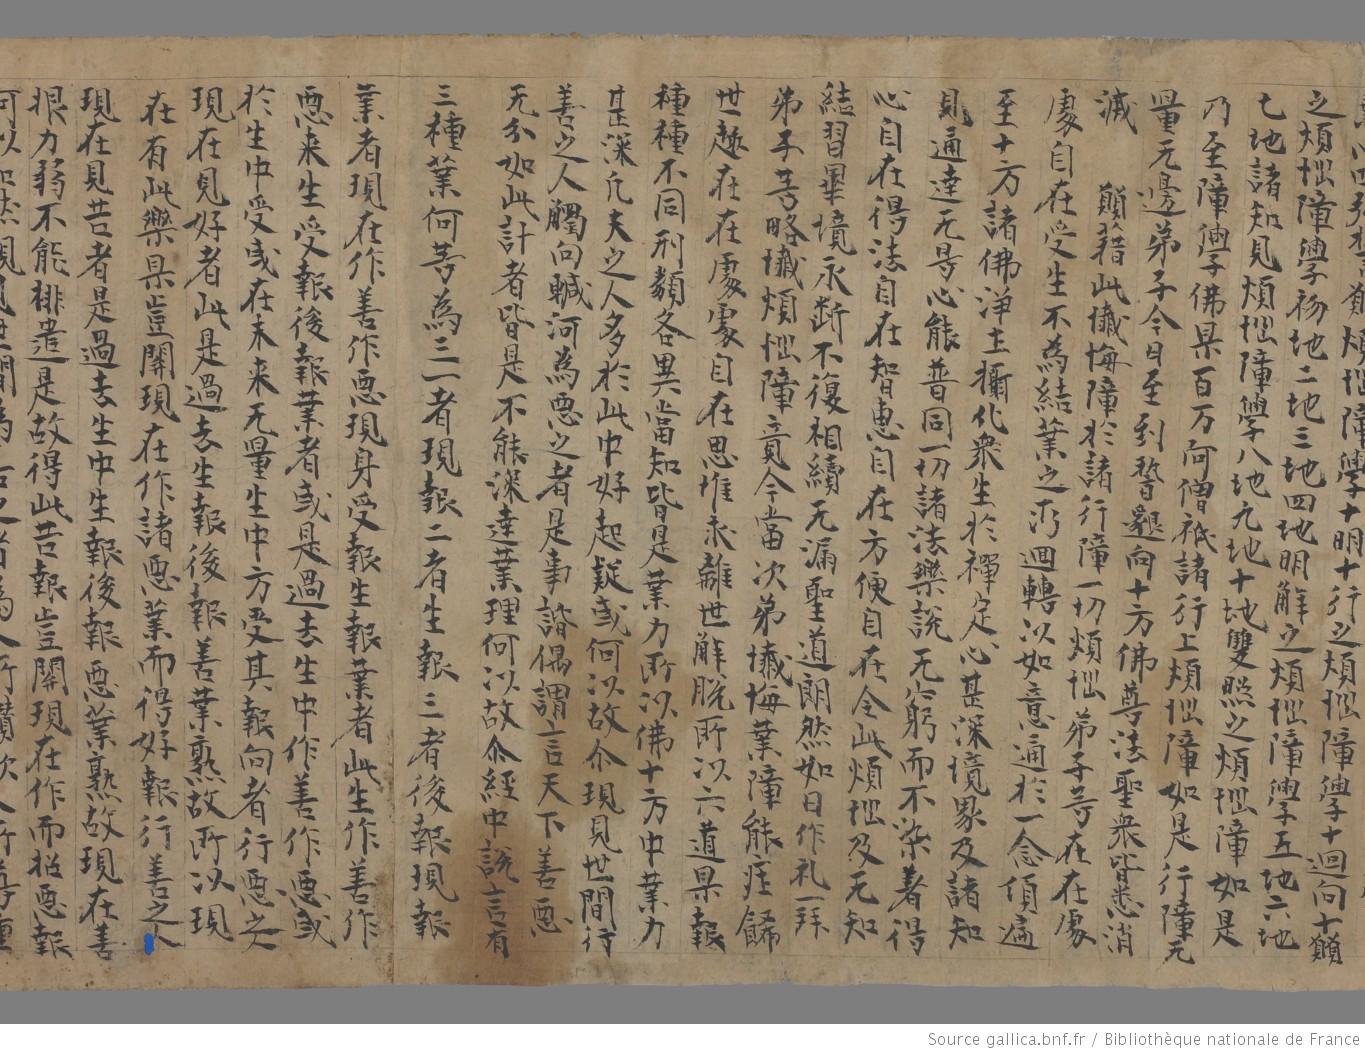 之煩惱障學十明十行之煩惱障學十迴向十願
七地諸知見煩惱障學初地二地三地四地明解之煩惱障學五地六地
乃至障學佛果百万阿僧祇諸行上煩惱障如是行障无
量无邊弟子今日至到誓䫌向十方佛尊法聖衆皆悉消
滅 願藉此懺悔障於諸行障一切煩惱弟子等在在處
處自在受生不為結業之所迴轉以如意通於一念頃遍
至十方諸佛淨土攝化衆生於禪定心甚深境界及諸知
見通達无㝵心能普同一切諸法樂說无窮而不染著得
心自在得法自在智惠自在方便自在令此煩惱及无知
結習畢境永断不復相續无漏聖道朗然如日作礼一拜
弟子等略懺煩惱障竟今當次弟懺悔業障能疰餝
世趣在在處處自在思惟求離世解脫所以六道果報
種種不同刑類各異當知皆是業力所以佛十方中業力
甚深凡夫之人多於此中好起疑或何以故尒現見世間行
善之人觸向轗河為惡之者是事諧偶謂言天下善惡
无分如此計者皆是不能深達業理何以故尒經中說言有
三種業何等為三一者現報二者生報三者後報現報
業者現在作善作惡現身受報生報業者此生作善作
惡来生受報後報業者或是過去生中作善作惡或
於生中受或在未来无量生中方受其報向者行惡之
現在見好者此是過去生報後報善業熟故所以現
在有此樂果豈關現在作諸惡業而得好報行善之人
現在見苦者是過去生中生報後報惡業熟故現在善
根力弱不能排遣是故得此苦報豈關現在作而招惡報